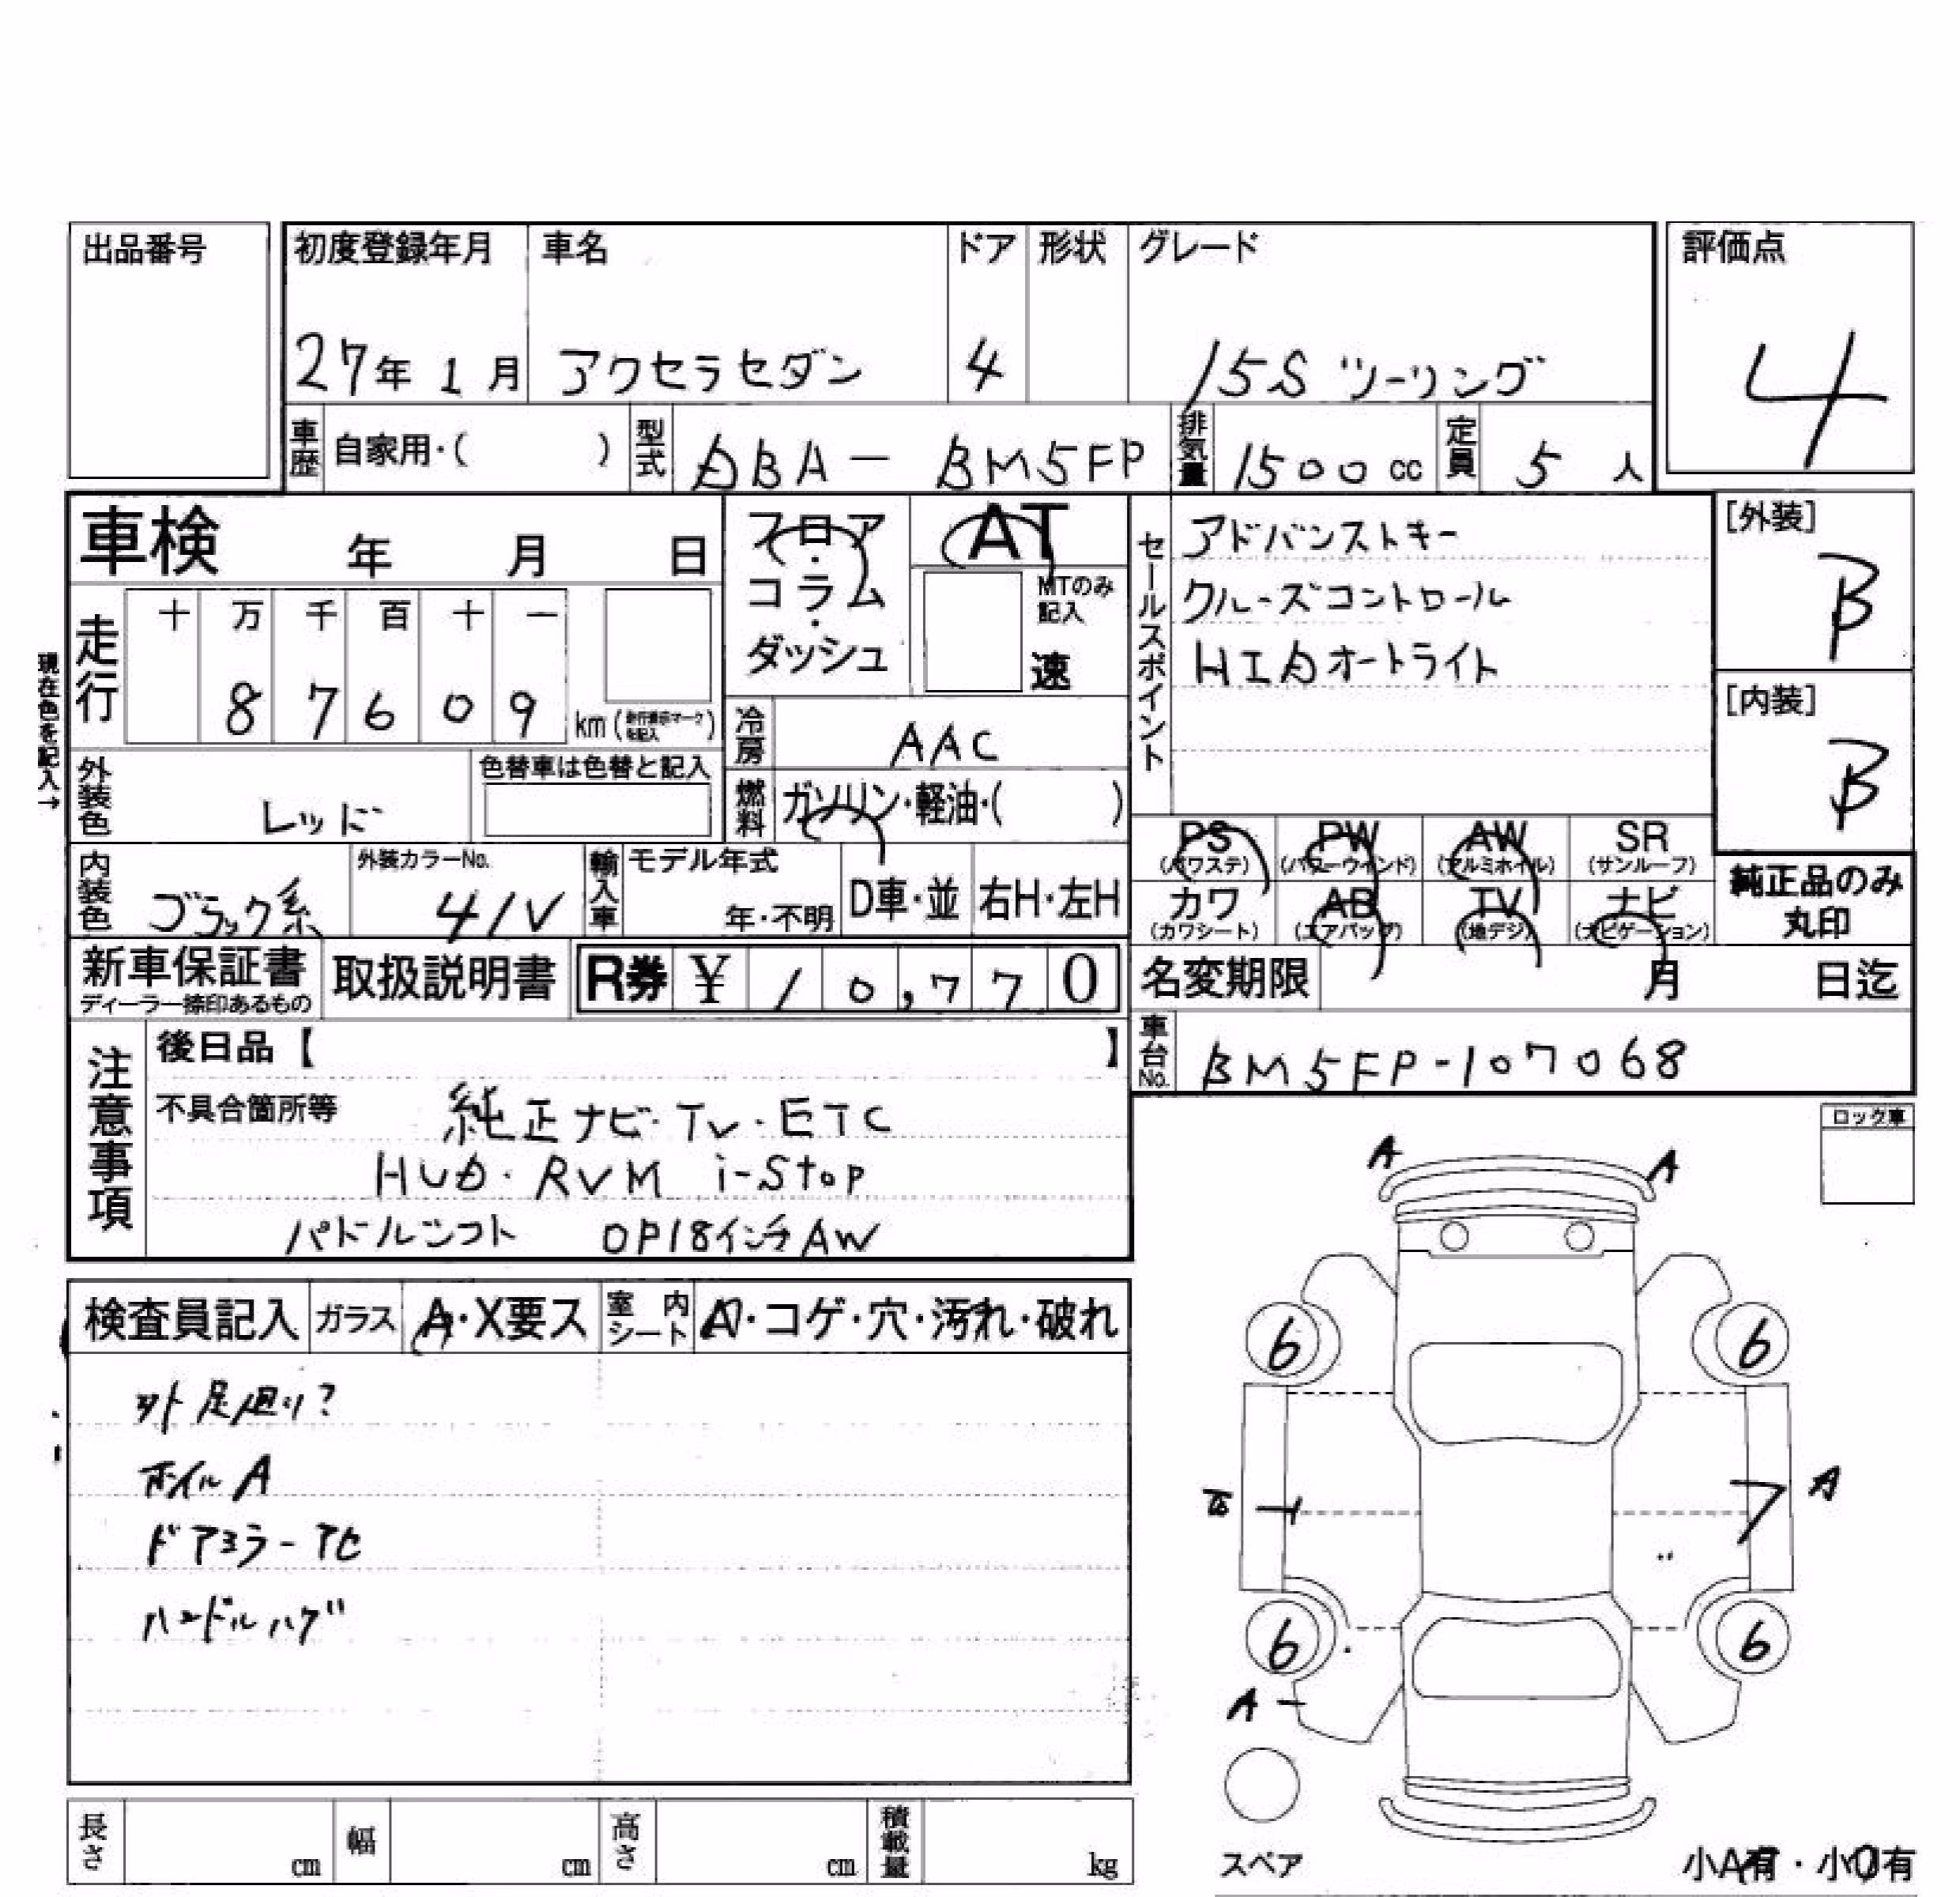 出品番号
初度登録年月 車名 ドア 形状 グレード 評価点
27年 1月 アクセラセダン 4 15S ツーリング 4
車歴 自家用・( ) 型式 DBA- BM5FP 排気量 1500cc 定員 5人
車検 年 月 日
フロア・コラム・ダッシュ
AT
MTのみ記入
速
セールスポイント
アドバンストキー
クルーズコントロール
HIDオートライト
[外装]
B
[内装]
B
現在色を記入→
走行 十 万 千 百 十 一
8 7 6 0 9 km (走行表示マークを記入)
冷房 AAC
外装色 レッド 色替車は色替と記入
燃料 ガソリン・軽油・( )
内装色 ブラック系 外装カラーNo. 41V 輸入車 モデル年式 年・不明 D車・並 右H・左H
PS (パワステ) PW (パワーウインド) AW (アルミホイル) SR (サンルーフ)
カワ (カワシート) AB (エアバッグ) TV (地デジ) ナビ (ナビゲーション)
純正品のみ
丸印
新車保証書 ディーラー捺印あるもの 取扱説明書 R券 ¥ 10,770
名変期限 月 日迄
車台No. BM5FP-107068
注意事項
後日品【 】
不具合箇所等 純正ナビ・TV・ETC
HUD・RVM i-Stop
パドルシフト OP18インチAW
ロック車
A A
検査員記入 ガラス A・X要ス 室内シート A・コゲ・穴・汚れ・破れ
ホイルA
ドアミラーアセ
ハンドルハゲ
6 6
A
6 6
A
スペア
小A有・小U有
長さ cm 幅 cm 高さ cm 積載量 kg